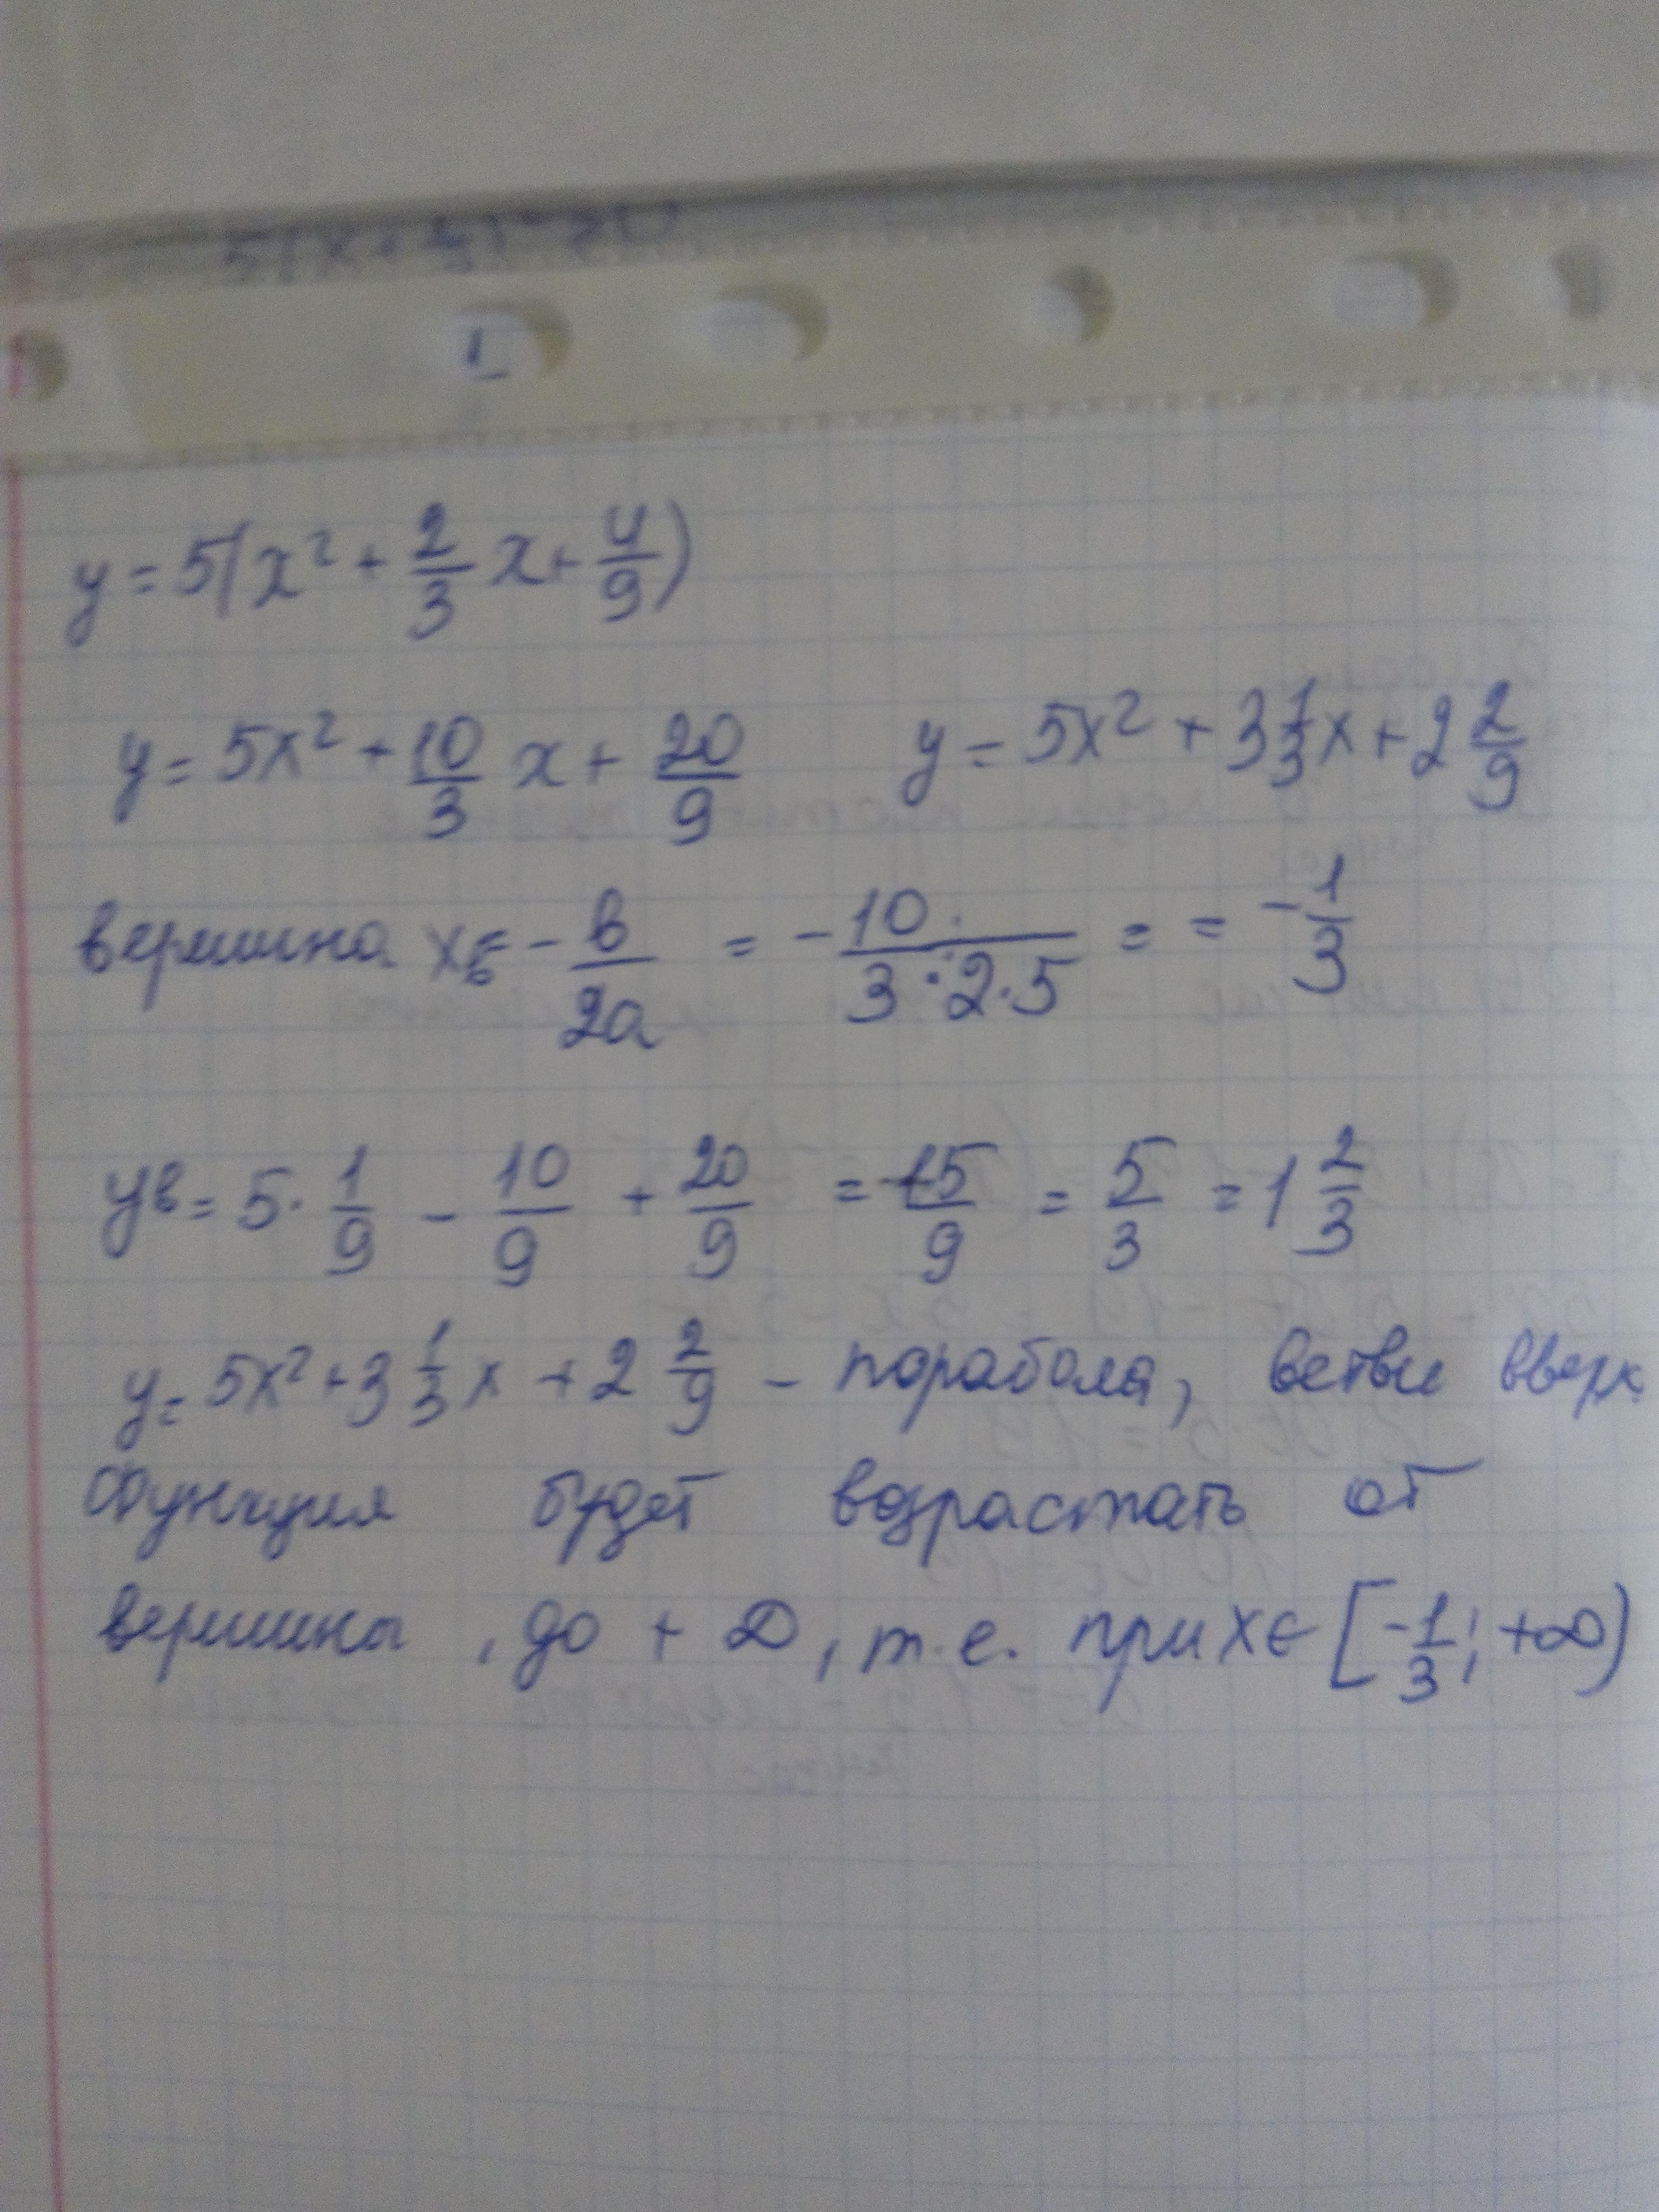 1
y = 5(x² + 2/3 x + 4/9)
y = 5x² + 10/3 x + 20/9    y = 5x² + 3 1/3 x + 2 2/9
вершина xв = - в/2a = - 10/(3·2·5) = = - 1/3
yв = 5 · 1/9 - 10/9 + 20/9 = 15/9 = 5/3 = 1 2/3
y = 5x² + 3 1/3 x + 2 2/9 - парабола, ветви вверх
Функция будет возрастать от
вершины, до + ∞, т.е. при x ∈ [-1/3; +∞)